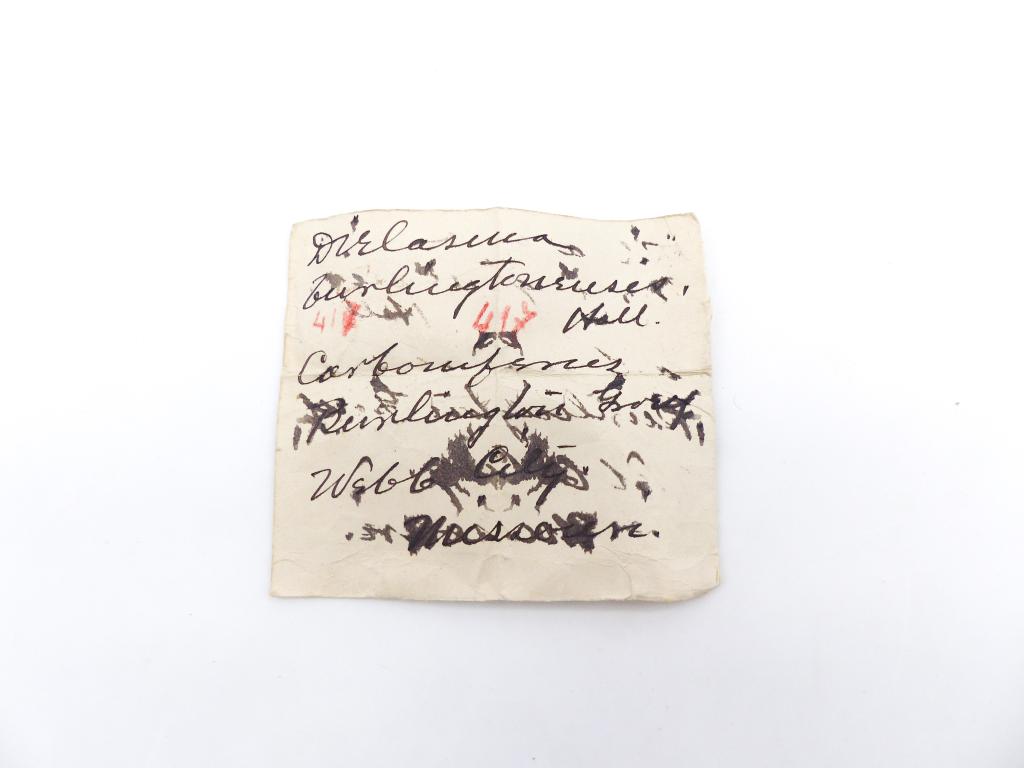 Dielasma
burlingtonensis.
417 417 Hall.
Carboniferous
Burlington Group
Webb City
Missouri.